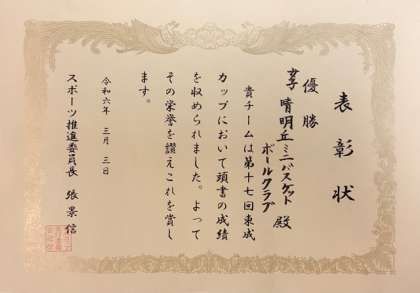 表彰状
優勝
女子 晴明丘ミニバスケット
ボールクラブ 殿
貴チームは第十七回東成
カップにおいて頭書の成績
を収められました。よって
その栄誉を讃えこれを賞し
ます。
令和六年 三月 三日
スポーツ推進委員長 張 景信